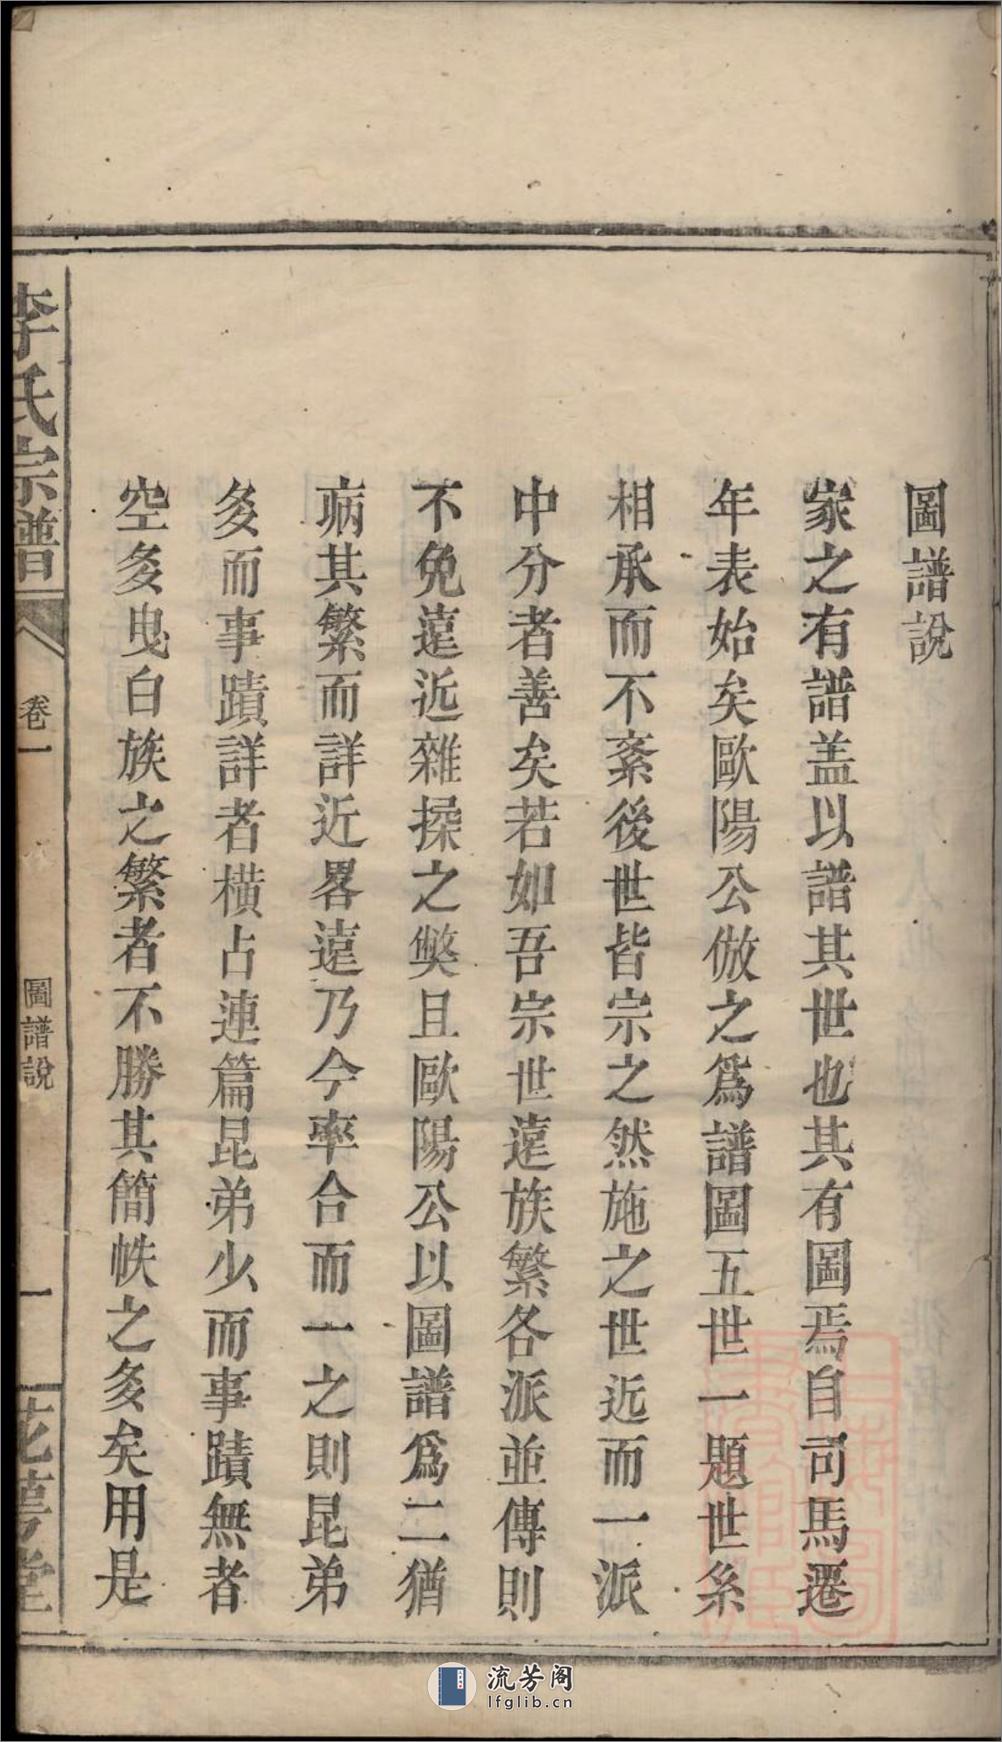 圖譜說
家之有譜盖以譜其世也其有圖焉自司馬遷
年表始矣歐陽公倣之爲譜圖五世一題世系
相承而不紊後世皆宗之然施之世近而一派
中分者善矣若如吾宗世遠族繁各派並傳則
不免遠近雜揉之獘且歐陽公以圖譜爲二猶
病其繁而詳近畧遠乃今率合而一之則昆弟
多而事蹟詳者橫占連篇昆弟少而事蹟無者
空多曳白族之繁者不勝其簡帙之多矣用是
李氏宗譜
卷一
圖譜說
一
花萼堂
流芳阁
lfglib.cn